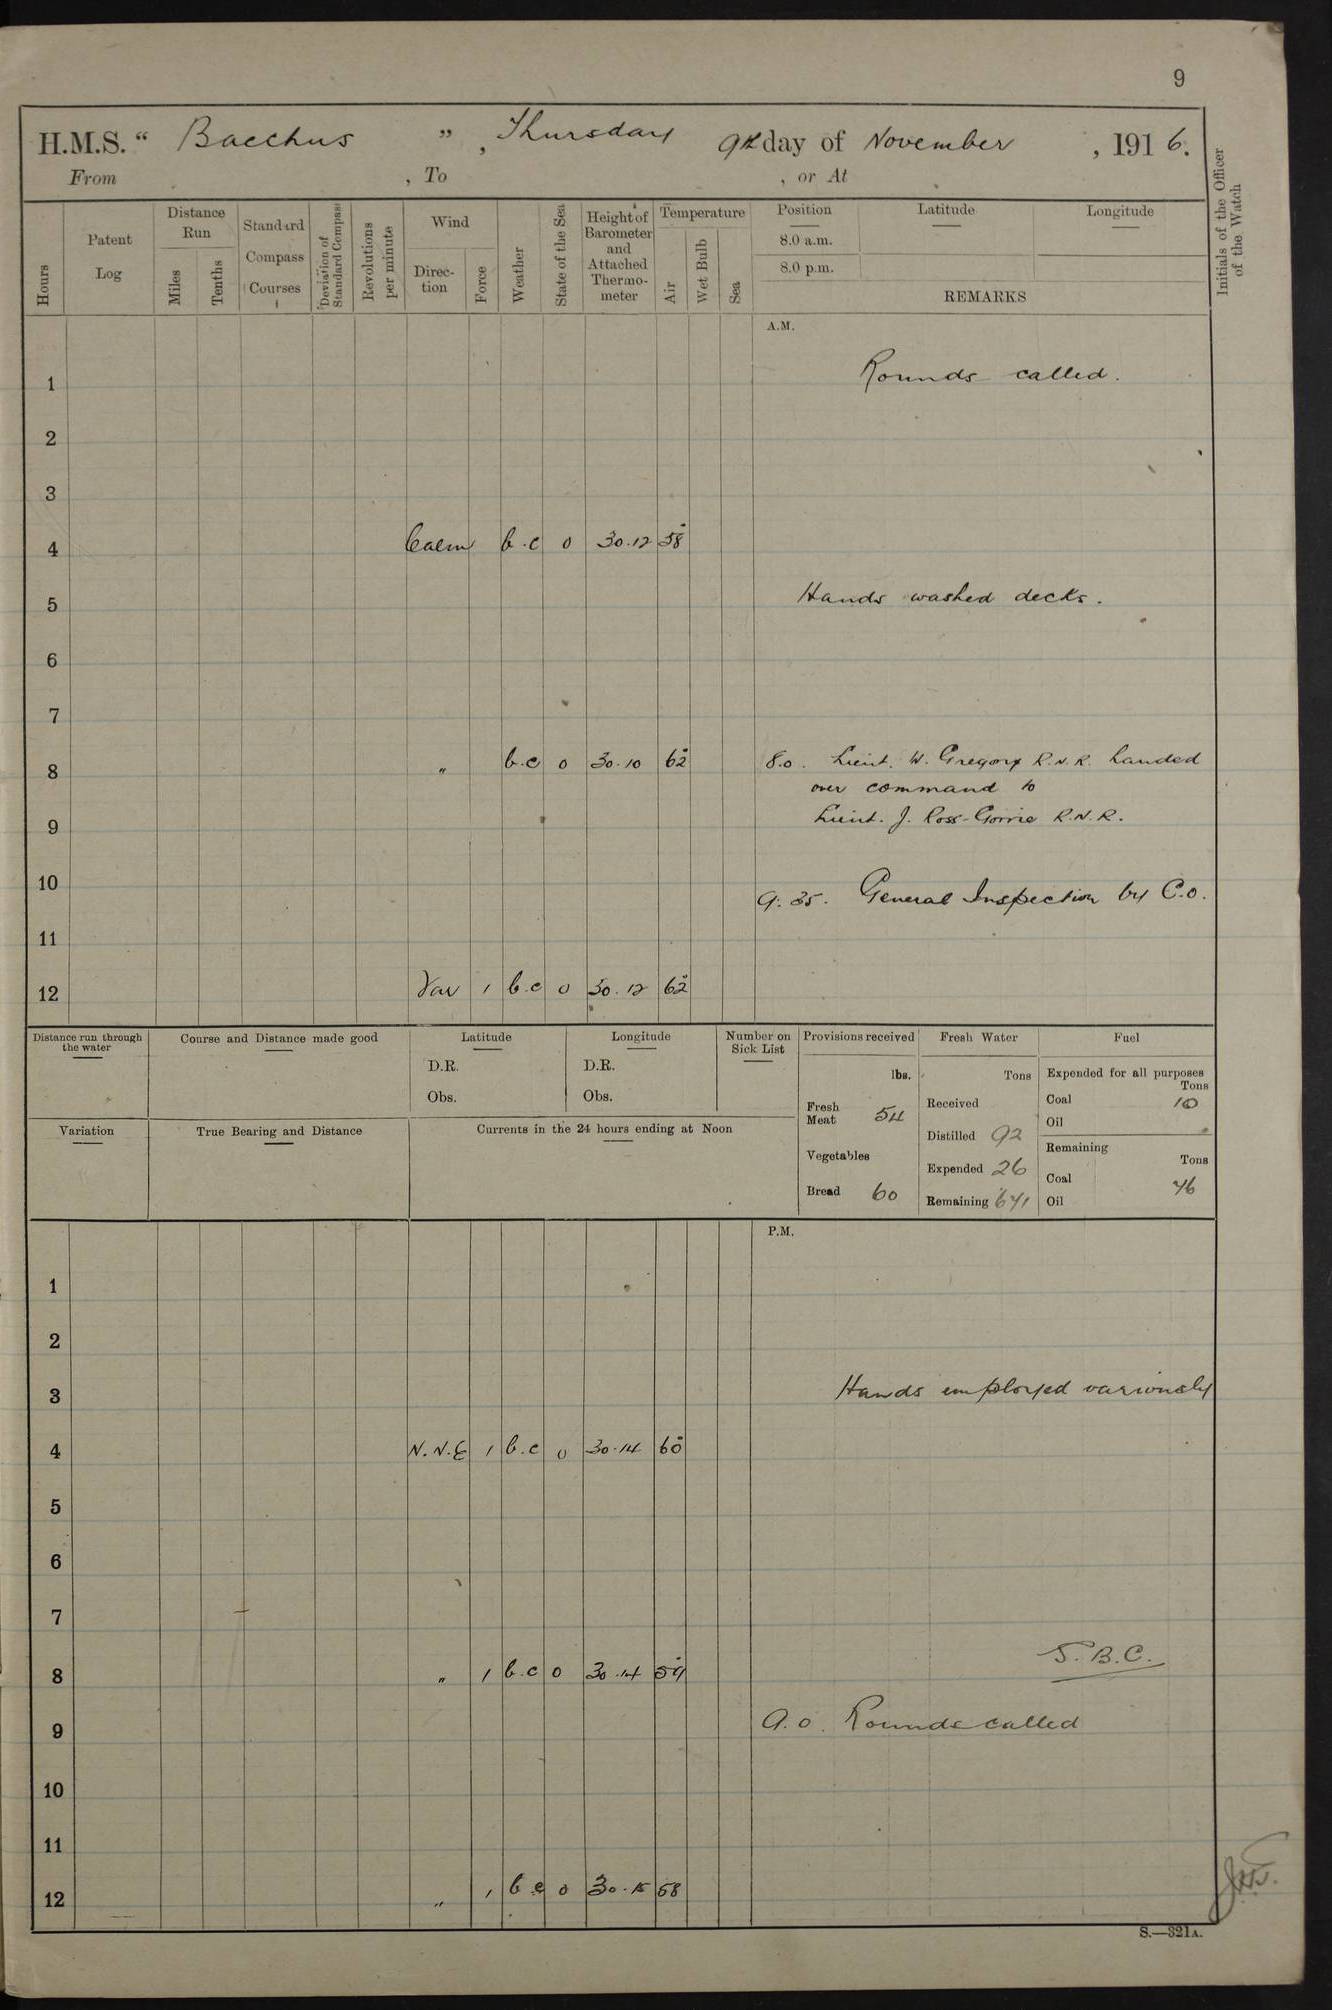 9
H.M.S. “ Bacchus ”, Thursday 9th day of November , 1916.
From , To , or At
Initials of the Officer of the Watch
Hours
Patent Log
Distance Run
Miles
Tenths
Standard Compass Courses
Deviation of Standard Compass
Revolutions per minute
Wind
Direc-tion
Force
Weather
State of the Sea
Height of Barometer and Attached Thermo-meter
Temperature
Air
Wet Bulb
Sea
Position Latitude Longitude
8.0 a.m.
8.0 p.m.
REMARKS
A.M.
1 Rounds called.
2
3
4 Calm b.c 0 30.12 58°
5 Hands washed decks.
6
7
8 „ b.c 0 30.10 62° 8.0. Lieut. W. Gregory R.N.R. handed
over command to
9 Lieut. J. Ross-Gorrie R.N.R.
10 9.35. General Inspection by C.O.
11
12 Var 1 b.c 0 30.12 62°
Distance run through the water
Course and Distance made good
Latitude
D.R.
Obs.
Longitude
D.R.
Obs.
Number on Sick List
Provisions received
lbs.
Fresh Meat 54
Vegetables
Bread 60
Fresh Water
Tons
Received
Distilled 92
Expended 26
Remaining 671
Fuel
Expended for all purposes
Tons
Coal 10
Oil
Remaining
Tons
Coal 76
Oil
Variation
True Bearing and Distance
Currents in the 24 hours ending at Noon
P.M.
1
2
3 Hands employed variously
4 N.N.E 1 b.c 0 30.14 60°
5
6
7
8 „ 1 b.c 0 30.14 59° S.B.C.
9 9.0. Rounds called
10
11
12 „ 1 b.c 0 30.15 58
S.—321A.